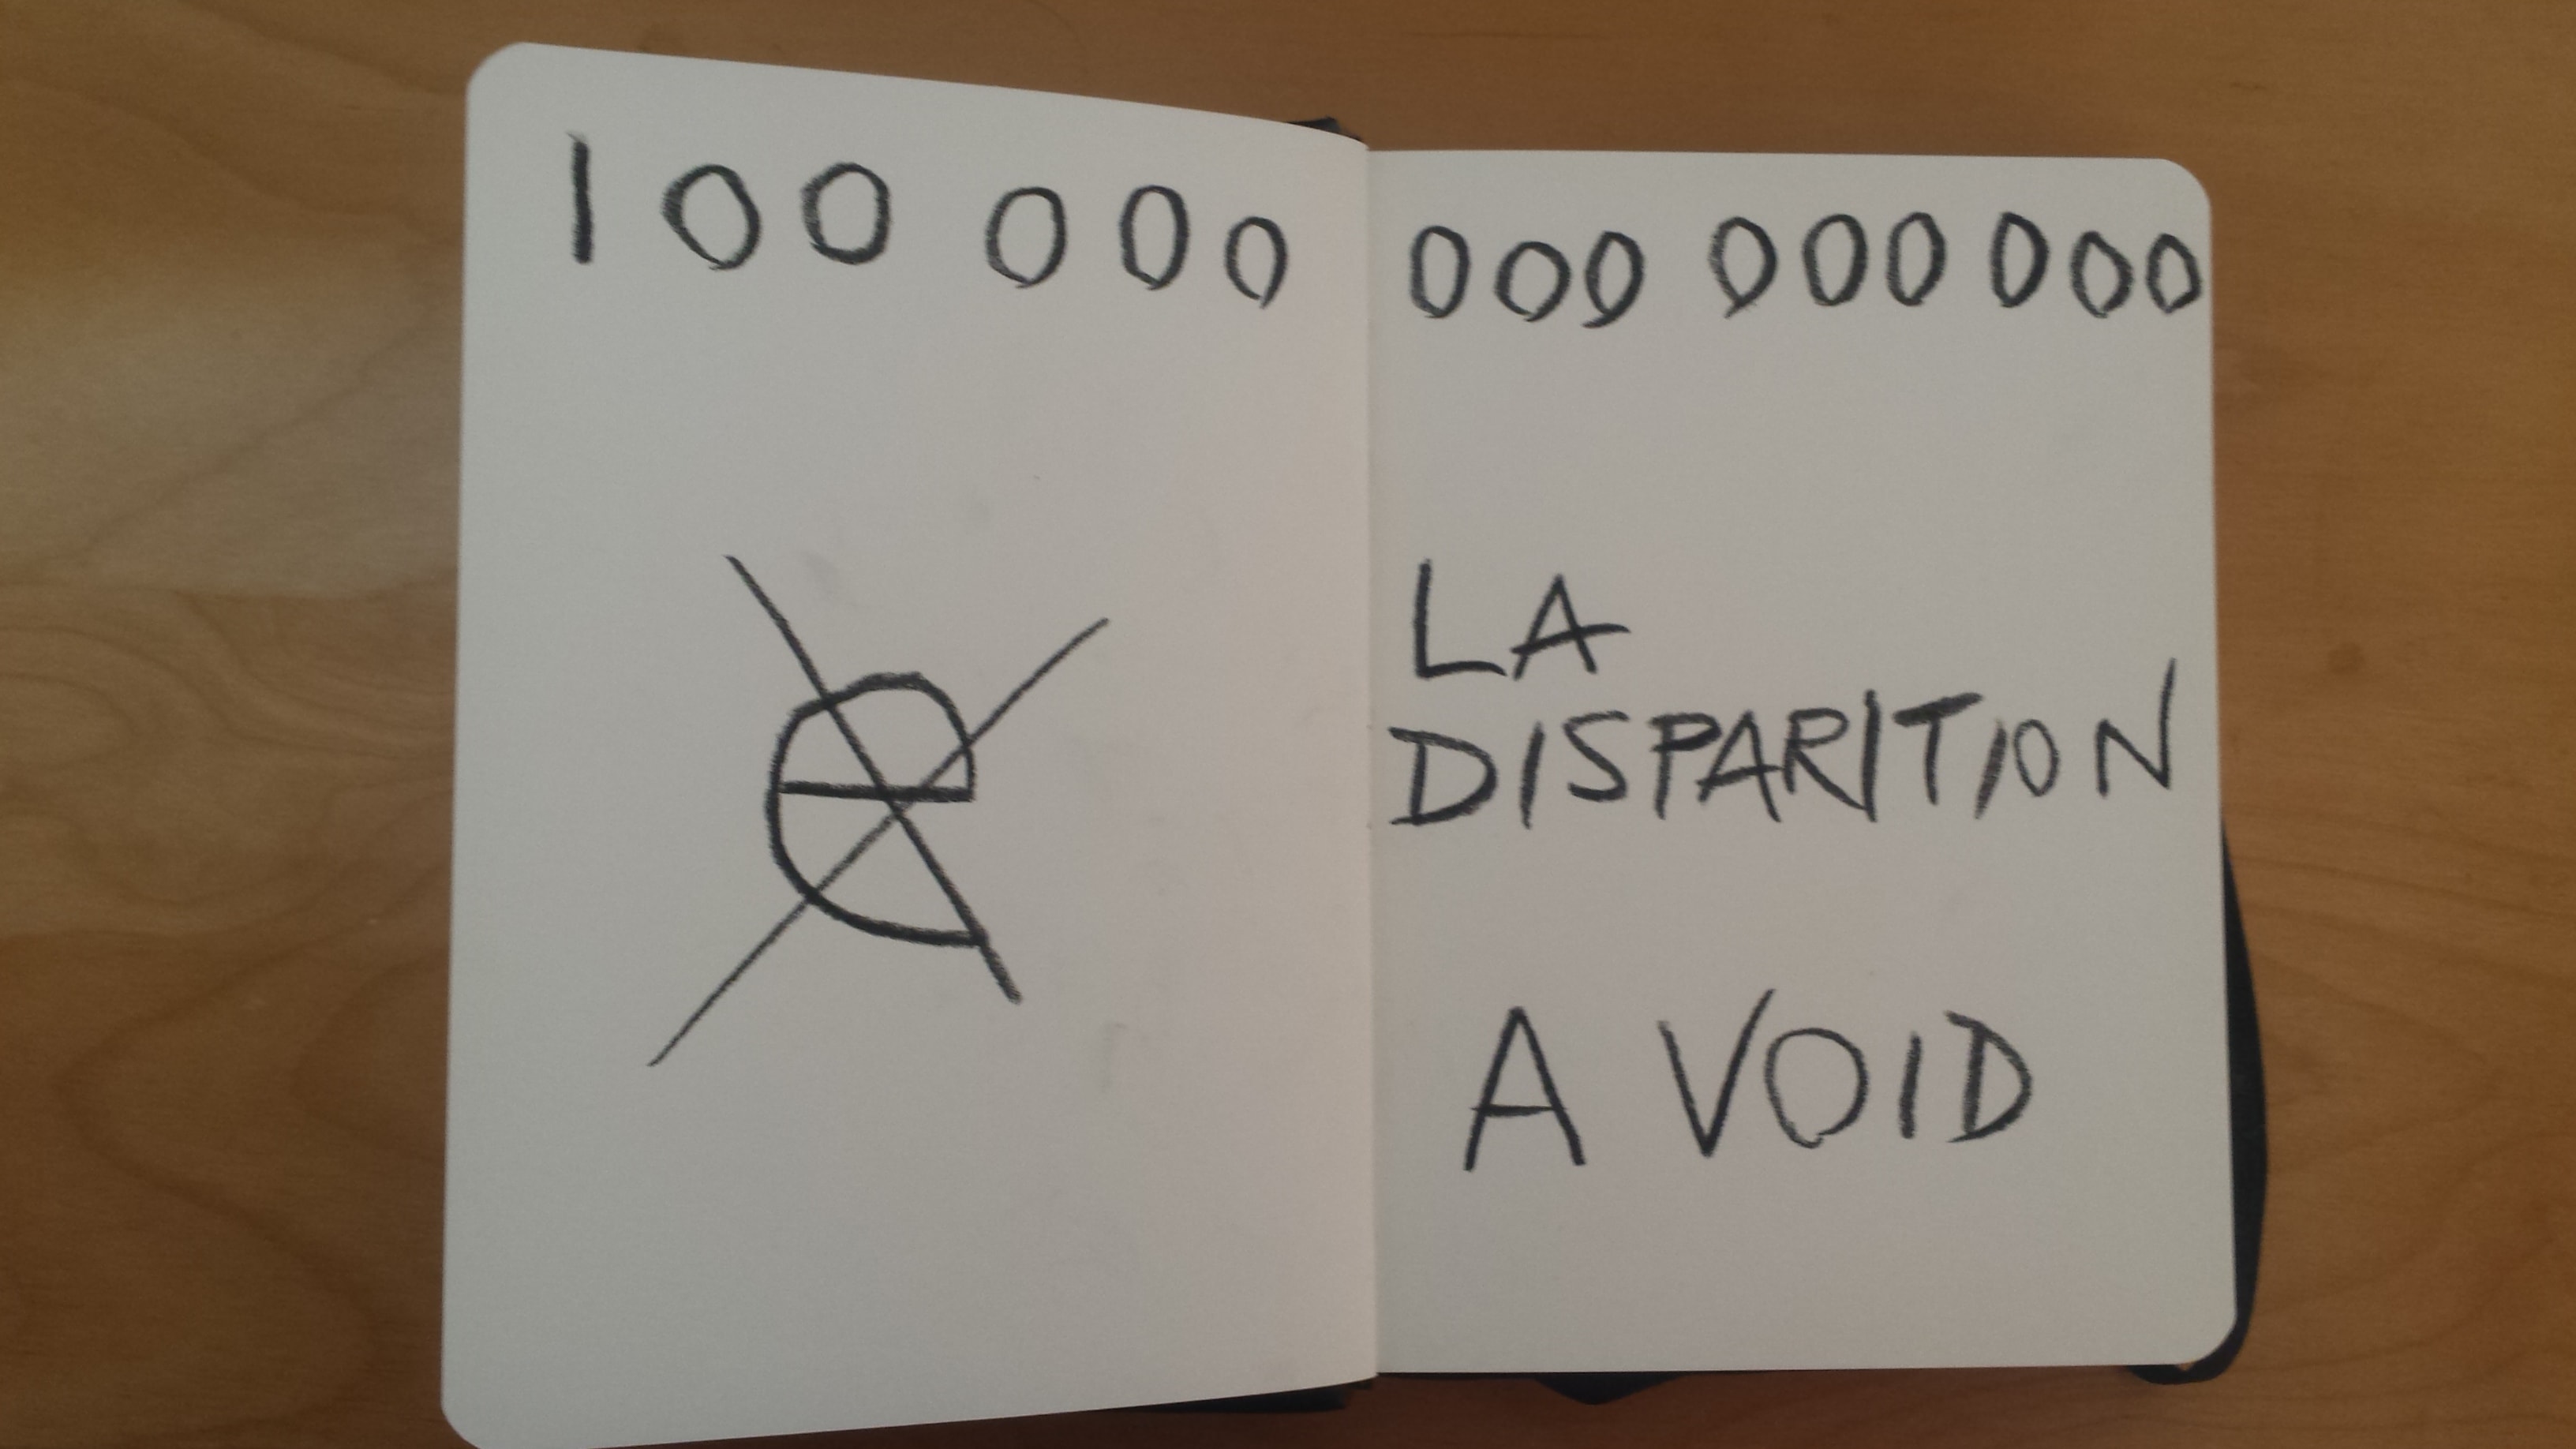 100 000 000 000 000
e
LA
DISPARITION
A VOID